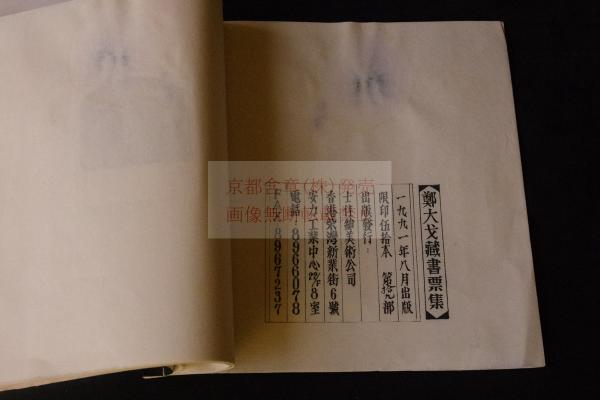 鄭大戈藏書票集
一九九一年八月出版
限印伍拾本 第拾九部
出版發行：
士林繪美術公司
香港柴灣新業街6號
安力工業中心22/F 8室
電話：8966078
FAX：8967237
京都含章(株)発売
画像無断転載禁止